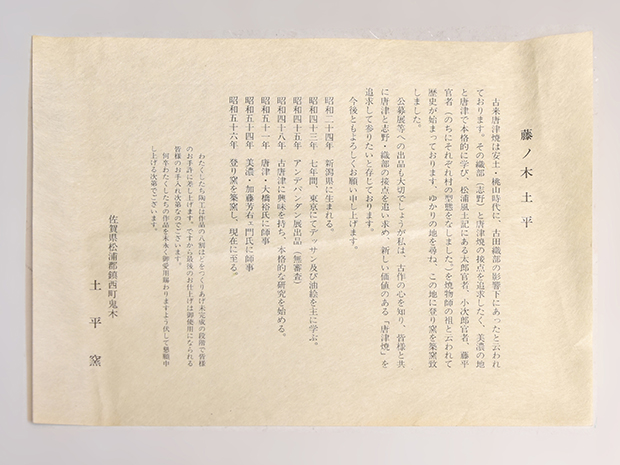 藤ノ木土平
古来唐津焼は安土・桃山時代に、古田織部の影響下にあったと云われ
ております。その織部（志野）と唐津焼の接点を追求したく、美濃の地
と唐津で本格的に学び、松浦風土記にある太郎官者、小次郎官者、藤平
官者（のちにそれぞれ村の型整をなしました。）を焼物師の祖と云われて
歴史が始まっております。ゆかりの地を尋ね、この地に登り窯を築窯致
しました。
公募展等への出品も大切でしょうが私は、古作の心を知り、皆様と共
に唐津と志野・織部の接点を追い求め、新しい価値のある「唐津焼」を
追求して参りたいと存じております。
今後ともよろしくお願い申し上げます。
昭和二十四年　新潟県に生まれる。
昭和四十三年　七年間、東京にてデッサン及び油絵を主に学ぶ。
昭和四十五年　アンデパンダン展出品（無審査）
昭和四十八年　古唐津に興味を持ち、本格的な研究を始める。
昭和五十一年　唐津・大橋裕氏に師事
昭和五十四年　美濃・加藤芳右ェ門氏に師事
昭和五十六年　登り窯を築窯し、現在に至る。
わたくしたち陶工は作品の八割ほどをつくりあげ未完成の段階で皆様
のお手許に差し上げます。ですから最後のお仕上げは御使用になられる
皆様のお手入れ次第なのでございます。
何卒わたくしたちの作品を末永く御愛用賜わりますよう伏して懇願申
し上げる次第でございます。
佐賀県東松浦郡鎮西町鬼木
土平窯